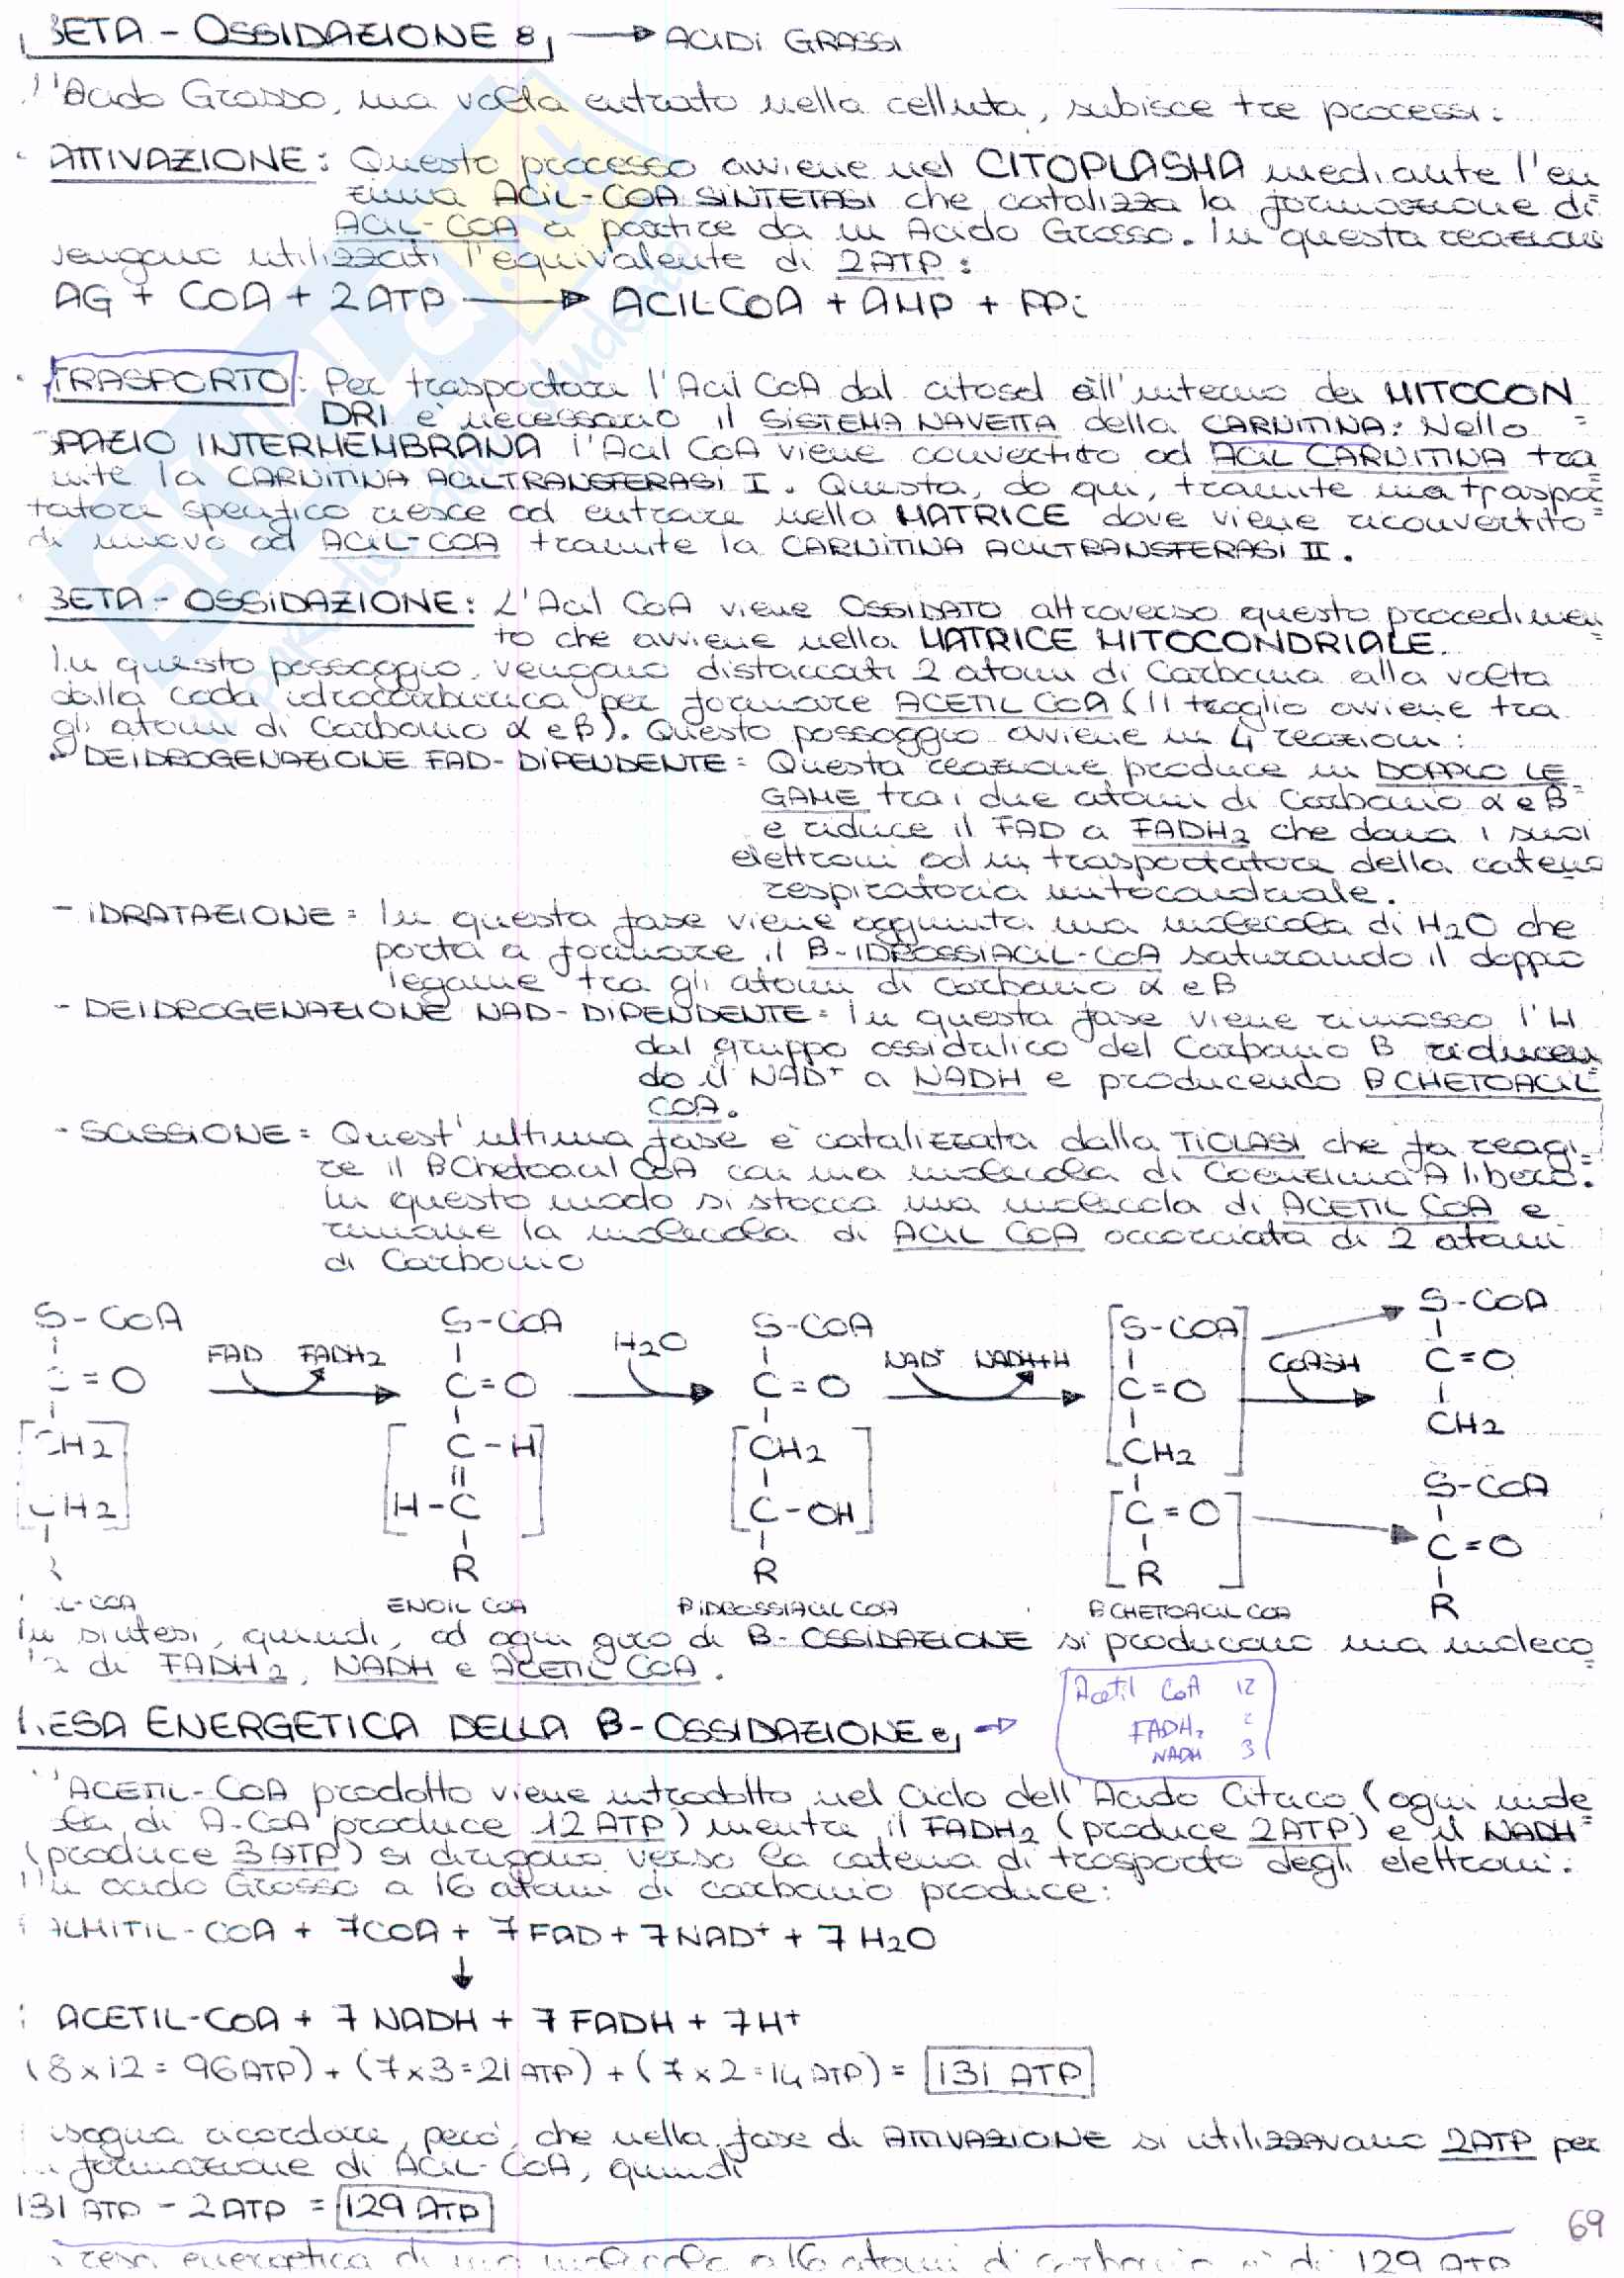 BETA - OSSIDAZIONE → ACIDI GRASSI
L'Acido Grasso, una volta entrato nella celluta, subisce tre processi:
ATTIVAZIONE: Questo processo avviene nel CITOPLASMA mediante l'en
zima ACIL-COA SINTETASI che catalizza la formazione di
ACIL-COA a partire da un Acido Grasso. In questa reazione
vengono utilizzati l'equivalente di 2ATP:
AG + COA + 2ATP → ACILCOA + AMP + PPi
TRASPORTO: Per trasportare l'Acil CoA dal citosol all'interno dei MITOCON
DRI è necessario il SISTEMA NAVETTA della CARNITINA: Nello
SPAZIO INTERMEMBRANA l'Acil CoA viene convertito ad ACIL CARNITINA tra
mite la CARNITINA ACILTRANSFERASI I. Questa, da qui, tramite un traspor
tatore specifico riesce ad entrare nella MATRICE dove viene riconvertito
di nuovo ad ACIL-COA tramite la CARNITINA ACILTRANSFERASI II.
BETA - OSSIDAZIONE: L'Acil CoA viene OSSIDATO attraverso questo procedimen
to che avviene nella MATRICE MITOCONDRIALE.
In questo passaggio, vengono distaccati 2 atomi di Carbonio alla volta
dalla coda idrocarburica per formare ACETIL COA (Il taglio avviene tra
gli atomi di Carbonio α e β). Questo passaggio avviene in 4 reazioni:
- DEIDROGENAZIONE FAD-DIPENDENTE = Questa reazione produce un DOPPIO LE
GAME tra i due atomi di Carbonio α e β
e riduce il FAD a FADH2 che dona i suoi
elettroni ad un trasportatore della catena
respiratoria mitocondriale.
- IDRATAZIONE = In questa fase viene aggiunta una molecola di H2O che
porta a formare il β-IDROSSIACIL-COA saturando il doppio
legame tra gli atomi di carbonio α e β
- DEIDROGENAZIONE NAD-DIPENDENTE = In questa fase viene rimosso l'H
dal gruppo ossidrilico del Carbonio β riducen
do il NAD+ a NADH e producendo β CHETOACIL
COA.
- SCISSIONE = Quest'ultima fase è catalizzata dalla TIOLASI che fa reagi
re il β Chetoacil CoA con una molecola di Coenzima A libero.
In questo modo si stacca una molecola di ACETIL COA e
rimane la molecola di ACIL COA accorciata di 2 atomi
di Carbonio
S-COA S-COA S-COA S-COA S-COA
FAD FADH2 H2O NAD+ NADH+H COASH
C=O C=O C=O C=O C=O
CH2 C-H CH2 CH2 CH2
CH2 H-C C-OH C=O S-COA
C=O
R R R R R
ENOIL COA β IDROSSIACIL COA β CHETOACIL COA
In sintesi, quindi, ad ogni giro di β-OSSIDAZIONE si producono una moleco
la di FADH2, NADH e ACETIL COA.
Acetil CoA 12
FADH2 2
NADH 3
RESA ENERGETICA DELLA β-OSSIDAZIONE →
L'ACETIL-COA prodotto viene introdotto nel Ciclo dell'Acido Citrico (ogni mole
cola di A-COA produce 12 ATP) mentre il FADH2 (produce 2ATP) e il NADH
(produce 3ATP) si dirigono verso la catena di trasporto degli elettroni.
Un acido Grasso a 16 atomi di carbonio produce:
PALMITIL-COA + 7COA + 7FAD + 7NAD+ + 7H2O
↓
ACETIL-COA + 7 NADH + 7 FADH + 7H+
(8x12 = 96ATP) + (7x3=21ATP) + (7x2=14ATP) = 131 ATP
Bisogna ricordare, però, che nella fase di ATTIVAZIONE si utilizzavano 2ATP per
formazione di ACIL-COA, quindi
131 ATP - 2ATP = 129 ATP
69
resa energetica di una molecola a 16 atomi di carbonio di 129 ATP